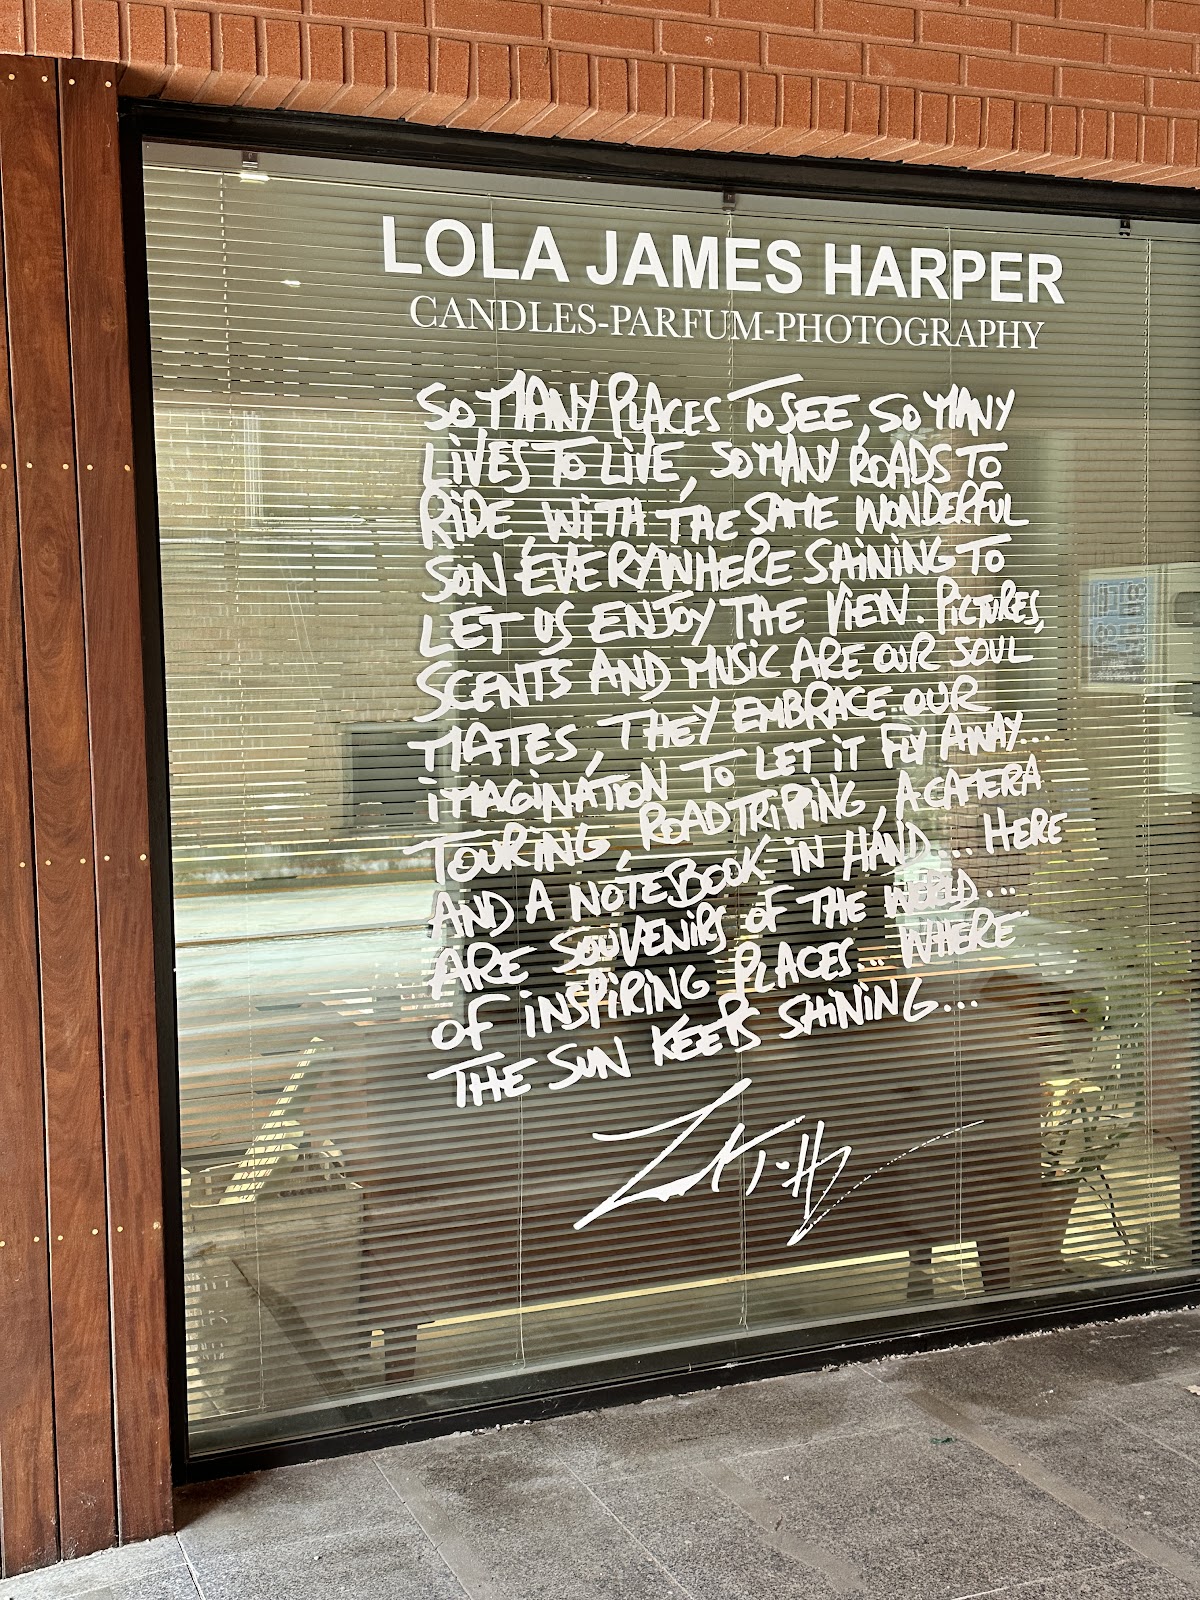 LOLA JAMES HARPER
CANDLES-PARFUM-PHOTOGRAPHY
SO MANY PLACES TO SEE, SO MANY
LIVES TO LIVE, SO MANY ROADS TO
RIDE, WITH THE SAME WONDERFUL
SON EVERYWHERE SHINING TO
LET US ENJOY THE VIEW. PICTURES,
SCENTS AND MUSIC ARE OUR SOUL
MATES, THEY EMBRACE OUR
IMAGINATION TO LET IT FLY AWAY...
TOURING, ROADTRIPPING, A CAMERA
AND A NOTEBOOK IN HAND... HERE
ARE SOUVENIRS OF THE WORLD...
OF INSPIRING PLACES... WHERE
THE SUN KEEPS SHINING...